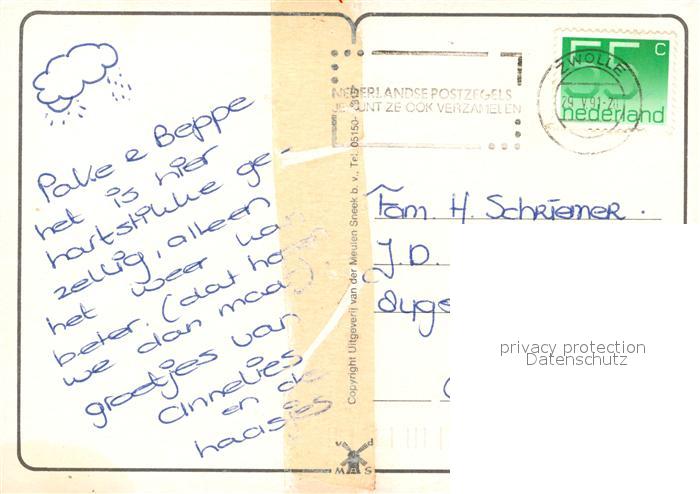 Pake e Beppe
het is hier
hartstikke ge-
zellig, alleen
het weer kan
beter. (dat ha
we dan maar
groetjes van
annelies
en de
haasjes
NEDERLANDSE POSTZEGELS
JE KUNT ZE OOK VERZAMELEN
ZWOLLE
55 c
nederland
Copyright Uitgeverij van der Meulen Sneek b.v., Tel. 05150-
Fam. H. Schriemer.
J.D.
privacy protection
Datenschutz
v d
MAS